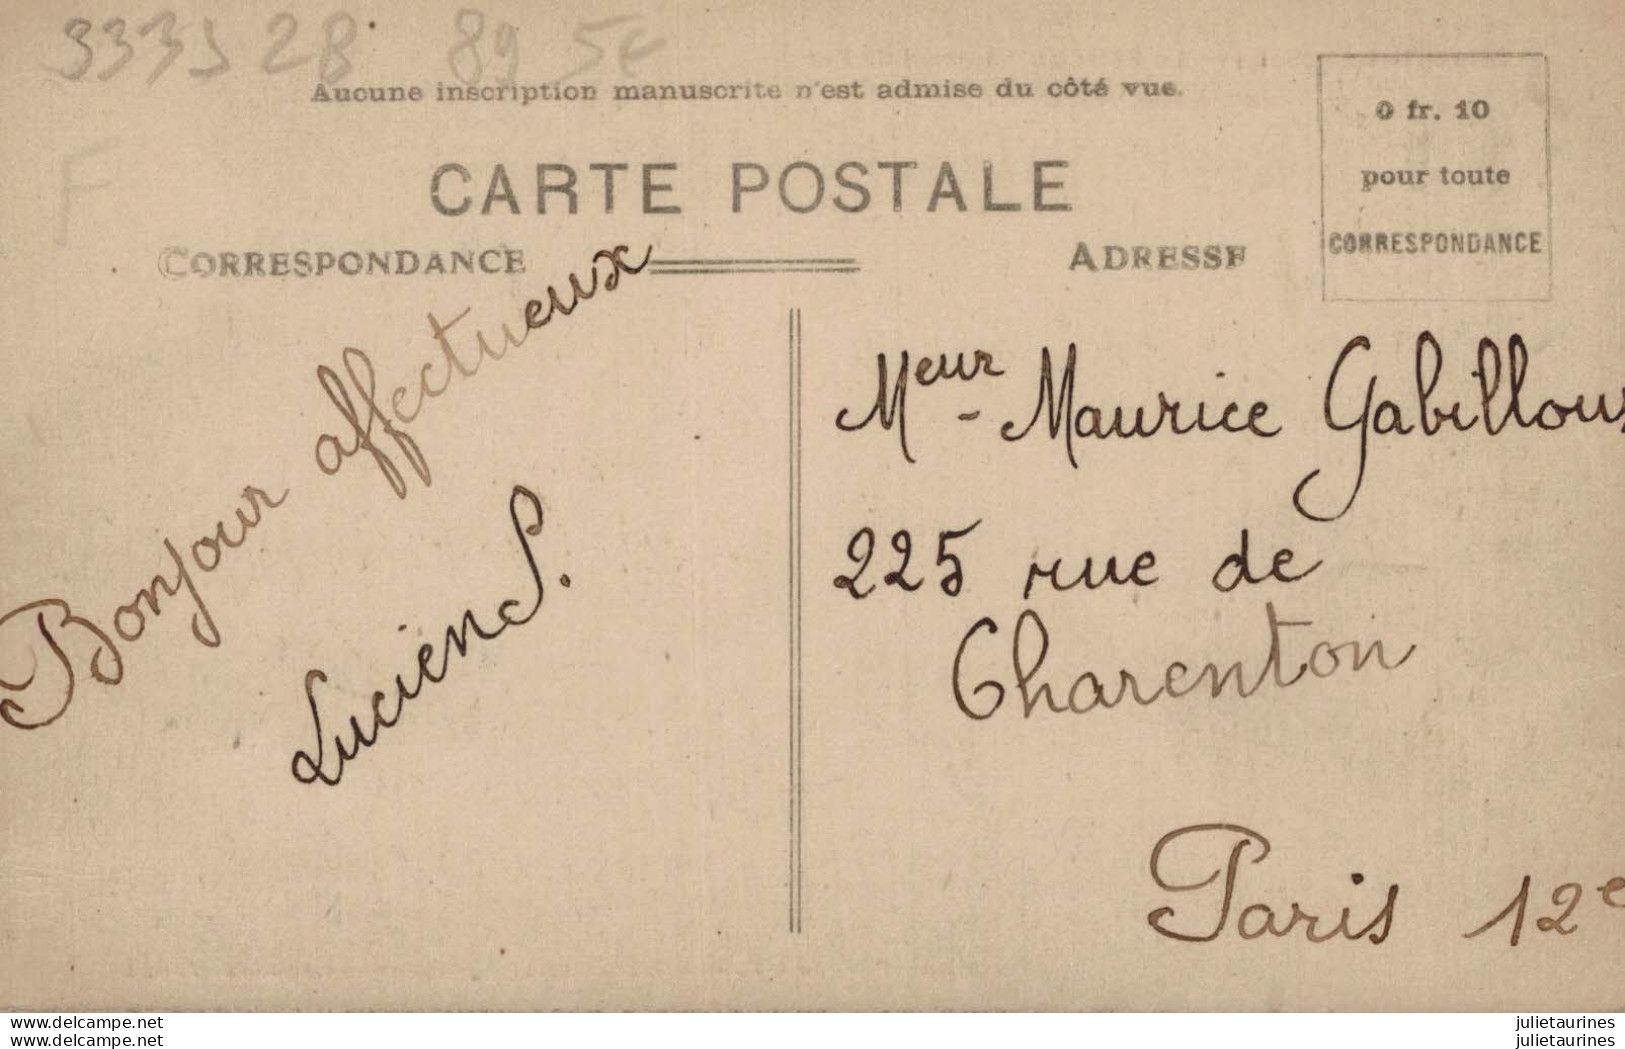 333528 89 5€
Aucune inscription manuscrite n'est admise du côté vue.
0 fr. 10
pour toute
CORRESPONDANCE
F
CARTE POSTALE
CORRESPONDANCE
ADRESSE
Bonjour affectueux
Lucien S.
Meur - Maurice Gabilloux
225 rue de
Charenton
Paris 12e
www.delcampe.net
www.delcampe.net
julietaurines
julietaurines